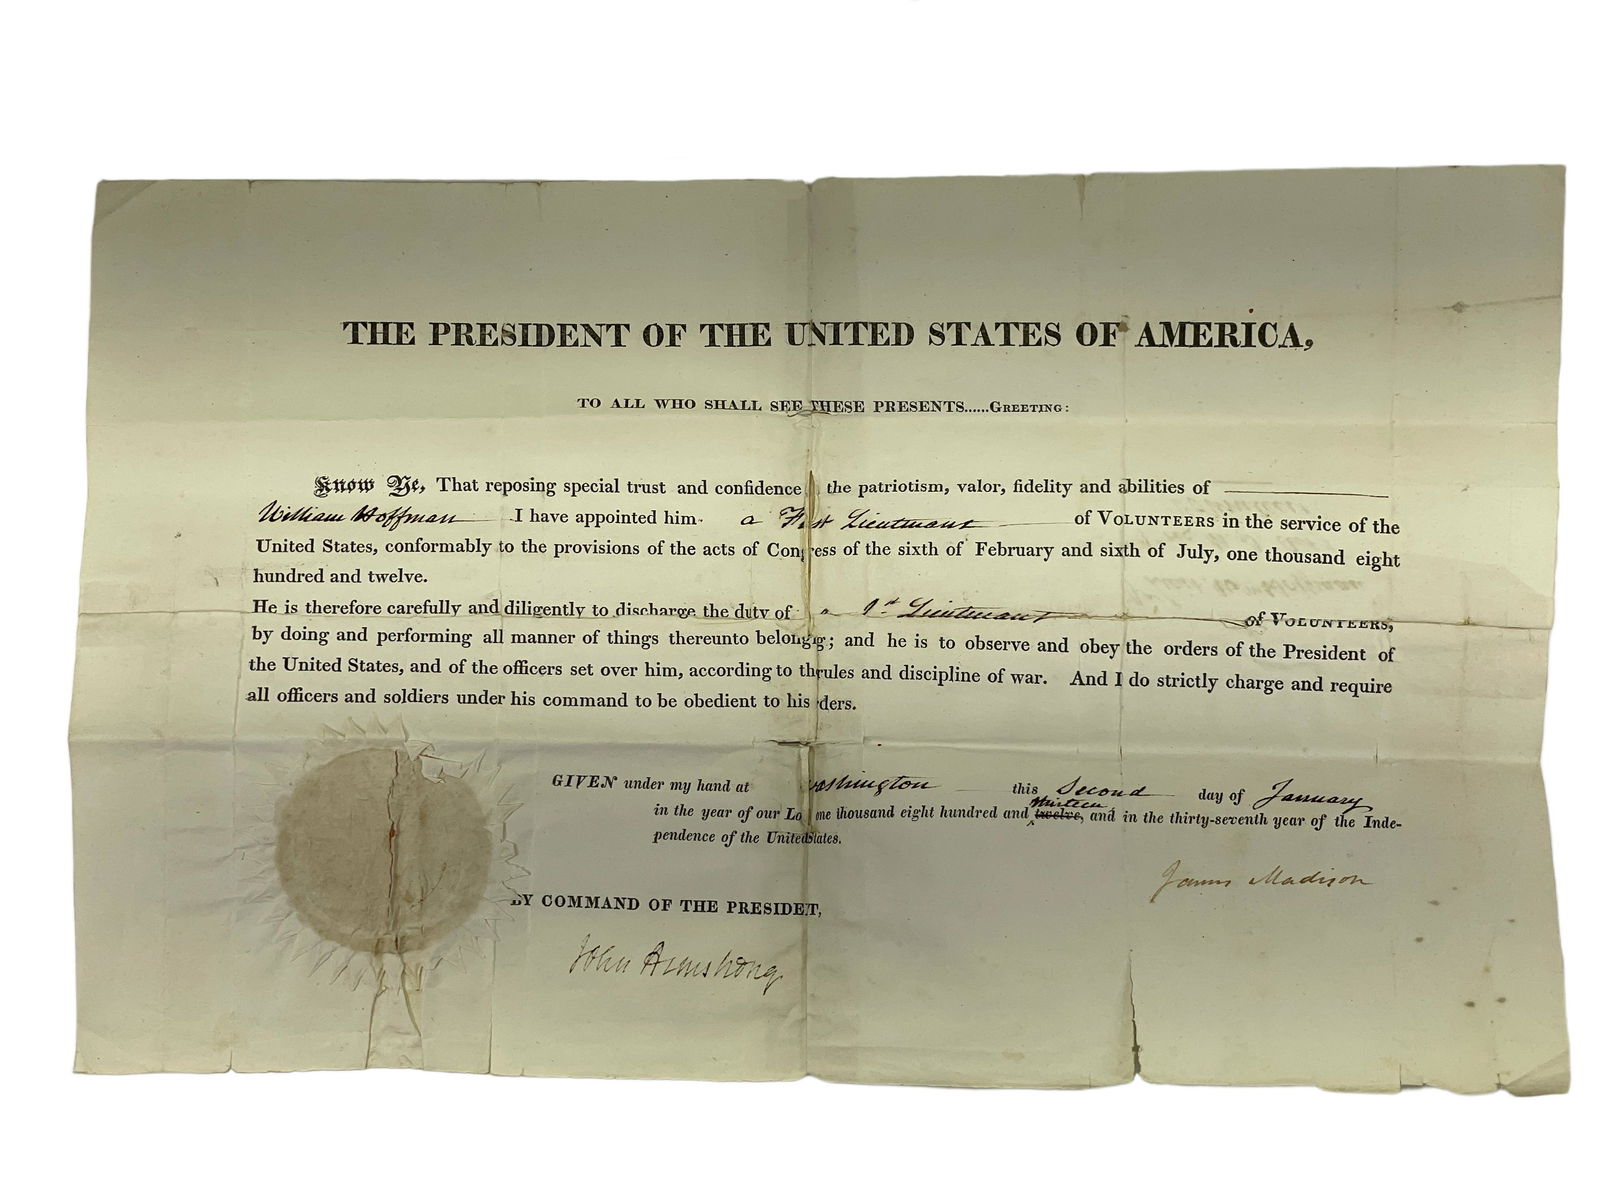 THE PRESIDENT OF THE UNITED STATES OF AMERICA,
TO ALL WHO SHALL SEE THESE PRESENTS......GREETING:
Know Ye, That reposing special trust and confidence the patriotism, valor, fidelity and abilities of
William Hoffman I have appointed him a First Lieutenant of VOLUNTEERS in the service of the
United States, conformably to the provisions of the acts of Congress of the sixth of February and sixth of July, one thousand eight
hundred and twelve.
He is therefore carefully and diligently to discharge the duty of a 1st Lieutenant of VOLUNTEERS,
by doing and performing all manner of things thereunto belonging; and he is to observe and obey the orders of the President of
the United States, and of the officers set over him, according to the rules and discipline of war. And I do strictly charge and require
all officers and soldiers under his command to be obedient to his orders.
GIVEN under my hand at Washington this Second day of January
thirteen
in the year of our Lord one thousand eight hundred and twelve, and in the thirty-seventh year of the Inde-
pendence of the United States.
James Madison
BY COMMAND OF THE PRESIDENT,
John Armstrong